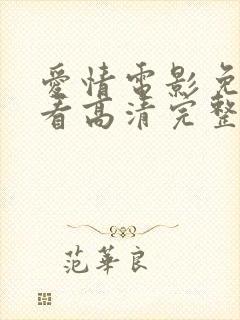 愛情電影免
看高清完整
范華良